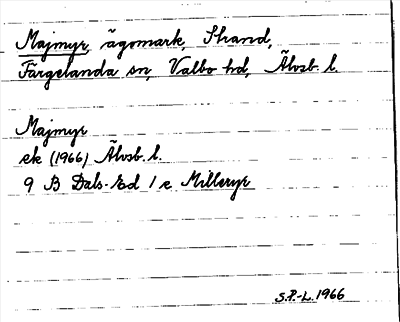 Majmyr, ägomark, Strand,
Färgelanda sn, Valbo hd, Älvsb. l.
Majmyr
ek (1966) Älvsb. l.
9 B Dals-Ed 1 e Milleryr
S.P.-L. 1966